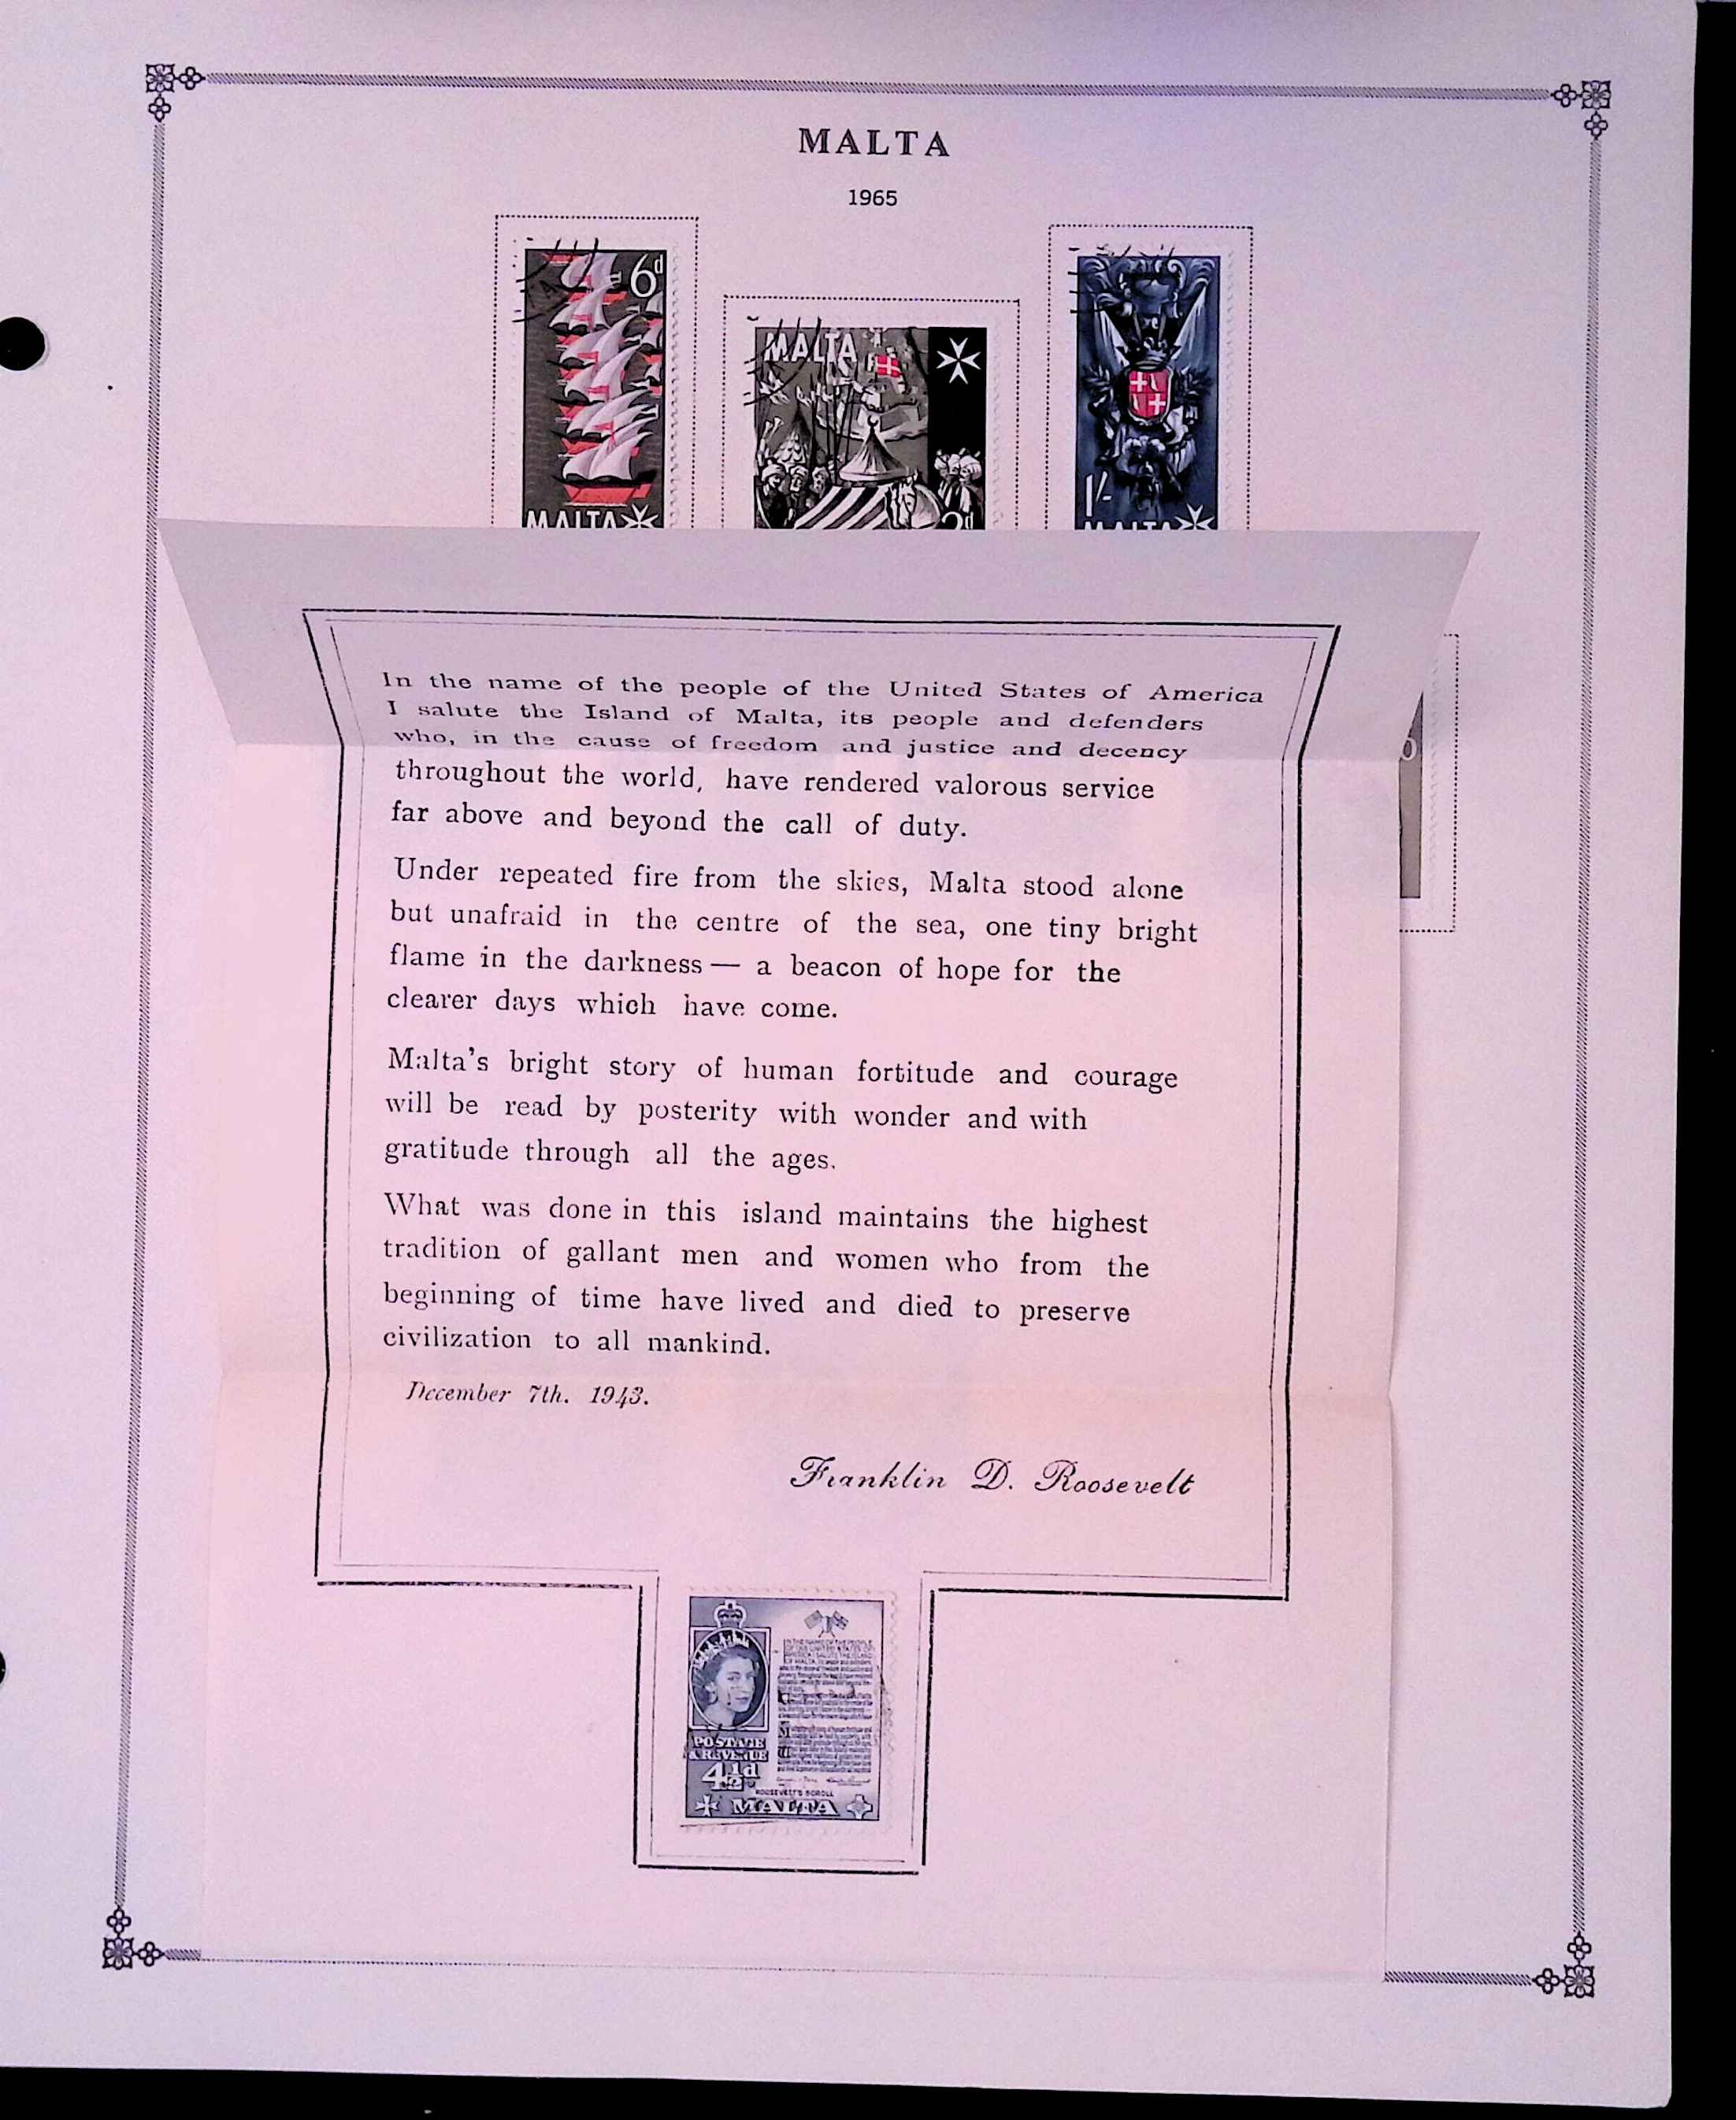 MALTA
1965
6d
MALTA
MALTA
2d
1/-
MALTA
In the name of the people of the United States of America
I salute the Island of Malta, its people and defenders
who, in the cause of freedom and justice and decency
throughout the world, have rendered valorous service
far above and beyond the call of duty.
Under repeated fire from the skies, Malta stood alone
but unafraid in the centre of the sea, one tiny bright
flame in the darkness — a beacon of hope for the
clearer days which have come.
Malta's bright story of human fortitude and courage
will be read by posterity with wonder and with
gratitude through all the ages.
What was done in this island maintains the highest
tradition of gallant men and women who from the
beginning of time have lived and died to preserve
civilization to all mankind.
December 7th. 1943.
Franklin D. Roosevelt
IN THE NAME OF THE PEOPLE
OF THE UNITED STATES OF
AMERICA I SALUTE THE ISLAND
OF MALTA,
POSTAGE
& REVENUE
4½d
ROOSEVELT'S SCROLL
MALTA